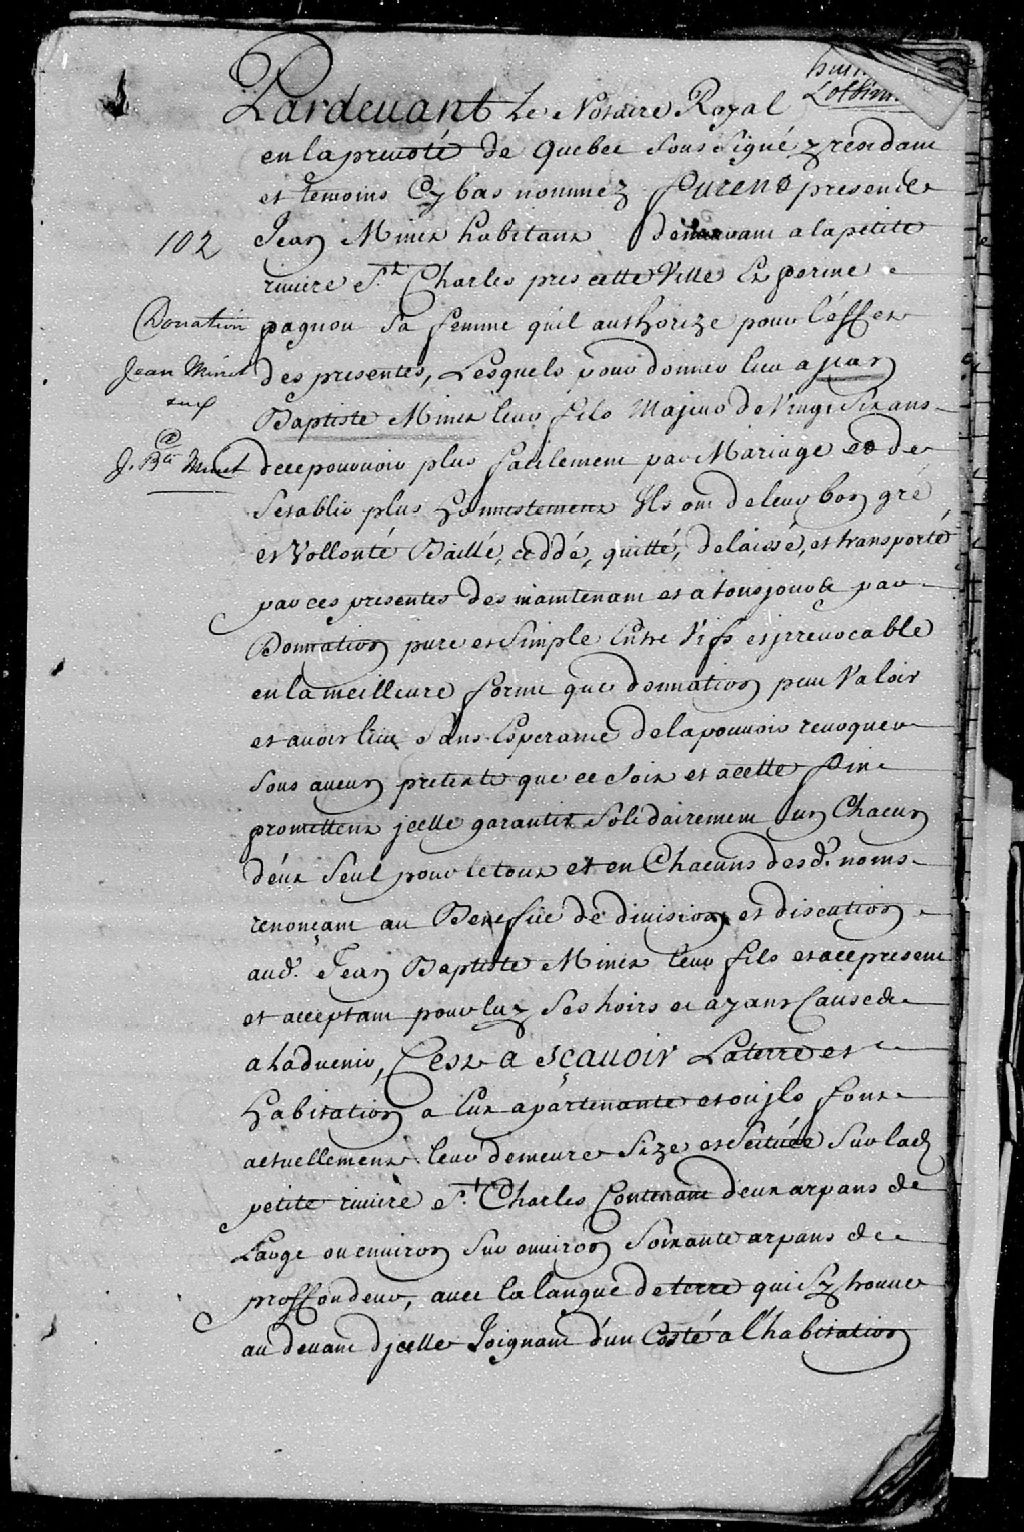 Pardevant Le Notaire Royal
en la prevosté de Quebec sous signé y residant
et temoins Cy bas nommez furent presents
102
Jean Minet habitant demeurant a la petite
riviere St. Charles pres cette Ville Et perine
Donation
pagnou sa femme qu'il authorize pour l'effet
Jean Minet
des presentes, Lesquels pour donner lieu a jean
Baptiste Minet leur fils Majeur de Vingt six ans
@
J. Bte Minet
de ce pouvoir plus facilement par Mariage et de
s'establir plus honnestement Ils ont de leur bon gré
et Vollonté Baillé, ceddé, quitté, delaissé, et transporté
par ces presentes des maintenant et a tousjours par
Donnation pure et simple Entre Vifs et jrrevocable
en la meilleure forme que donnation peut Valoir
et avoir lieu sans Esperance de la pouvoir revoquer
sous aucun pretexte que ce soit et a cette fin
promettent jcelle garantir solidairement un Chacun
d'eux seul pour le tout et en Chacuns desd. noms
renonçant au Benefice de division et discution
aud. Jean Baptiste Minet leur fils et a ce present
et acceptant pour luy ses hoirs et ayans Cause
a Ladvenir, C'est a sçavoir La terre et
habitation a Eux apartenante et ou jls font
actuellement leur demeure size et scituée sur lad
petite riviere St. Charles Contenant deux arpans de
Large ou environ sur environ soixante arpans de
proffondeur, avec la langue de terre qui s'y trouve
au devant d'jcelle Joignant d'un Costé a l'habitation